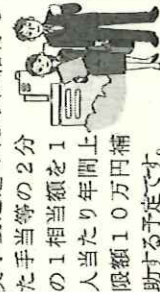 た手当等の２分
の１相当額を１
人当たり年間上
限額１０万円補
助する予定です。